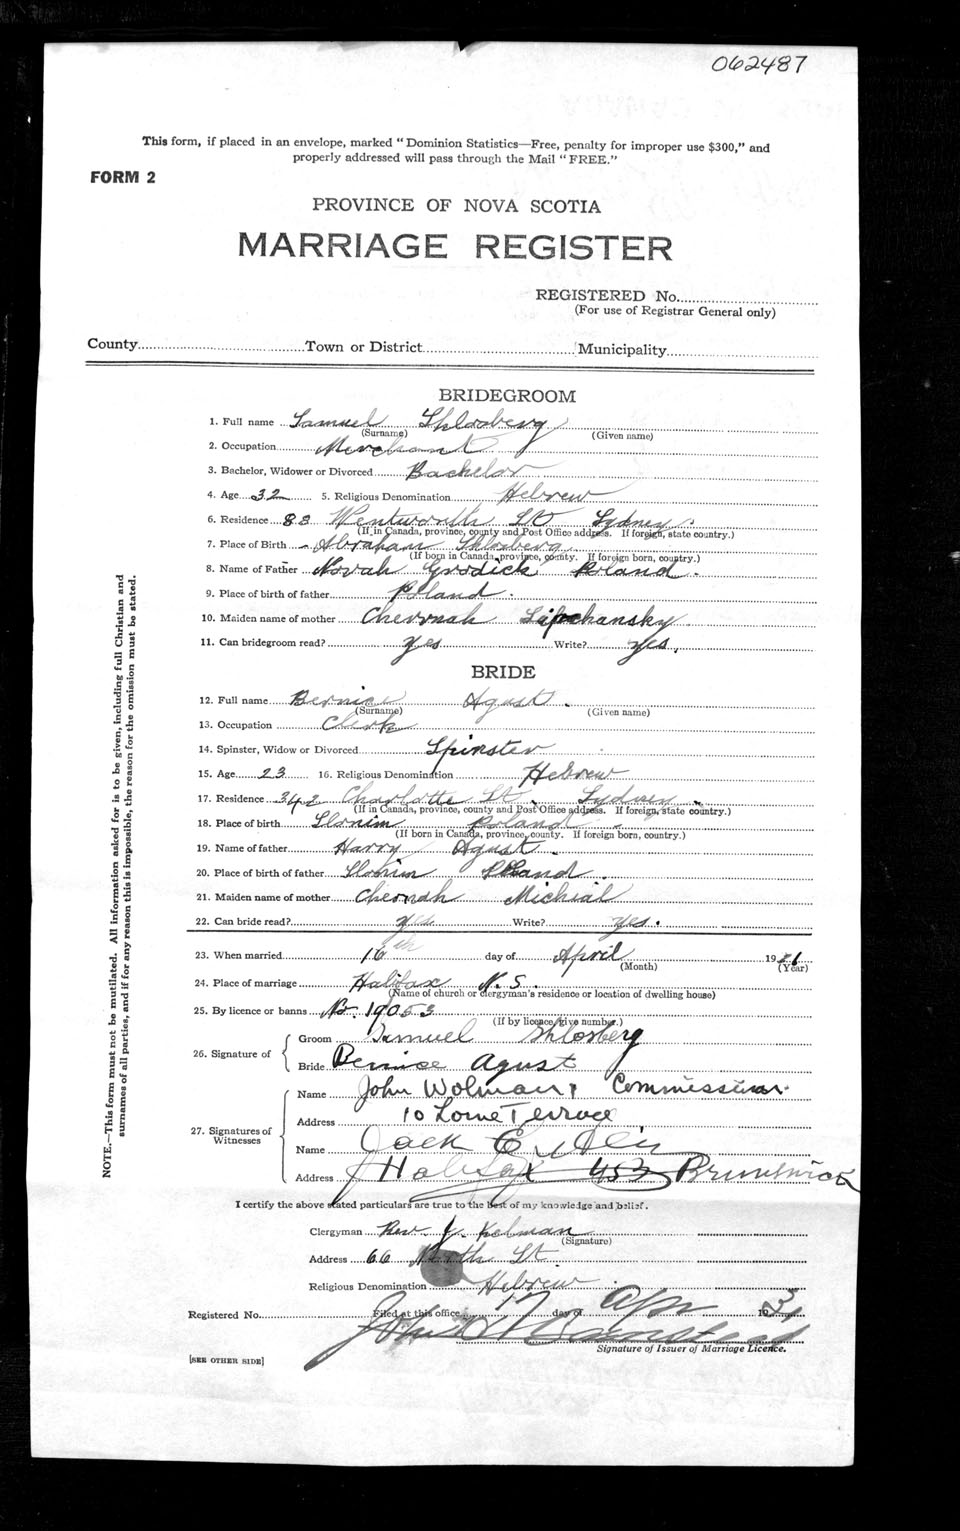 062487
This form, if placed in an envelope, marked "Dominion Statistics—Free, penalty for improper use $300," and
properly addressed will pass through the Mail "FREE."
FORM 2
PROVINCE OF NOVA SCOTIA
MARRIAGE REGISTER
REGISTERED No.
(For use of Registrar General only)
County Town or District Municipality
BRIDEGROOM
1. Full name Samuel Shlosberg
(Surname) (Given name)
2. Occupation Merchant
3. Bachelor, Widower or Divorced Bachelor
4. Age 32 5. Religious Denomination Hebrew
6. Residence 88 Wentworth St Sydney.
(If in Canada, province, county and Post Office address. If foreign, state country.)
7. Place of Birth - Abraham Shlosberg
(If born in Canada, province, county. If foreign born, country.)
8. Name of Father Novah Grodick Poland.
9. Place of birth of father Poland.
10. Maiden name of mother Chernah Lipchansky
11. Can bridegroom read? Yes Write? Yes.
BRIDE
12. Full name Bernice Agust.
(Surname) (Given name)
13. Occupation Clerk
14. Spinster, Widow or Divorced Spinster
15. Age 23 16. Religious Denomination Hebrew
17. Residence 342 Charlotte St. Sydney.
(If in Canada, province, county and Post Office address. If foreign, state country.)
18. Place of birth Slonim Poland.
(If born in Canada, province, county. If foreign born, country.)
19. Name of father Harry Agust.
20. Place of birth of father Slonim Poland.
21. Maiden name of mother Chernah Michial
22. Can bride read? yes Write? yes.
23. When married 16th day of April 19
(Month) (Year)
24. Place of marriage Halifax N.S.
(Name of church or clergyman's residence or location of dwelling house)
25. By licence or banns No. 19053
(If by licence give number.)
26. Signature of
Groom Samuel Shlosberg
Bride Bernice Agust
27. Signatures of Witnesses
Name John Wolman Commissioner
Address 10 Lorne Terrace
Name Jack
Address Halifax 453 Brunswick
I certify the above stated particulars are true to the best of my knowledge and belief.
Clergyman Rev. J. Kelman
(Signature)
Address 66 North St.
Religious Denomination Hebrew.
Registered No. Filed at this office 17 day of Apr 193
Signature of Issuer of Marriage Licence.
[SEE OTHER SIDE]
NOTE.—This form must not be mutilated. All information asked for is to be given, including full Christian and
surnames of all parties, and if for any reason this is impossible, the reason for the omission must be stated.